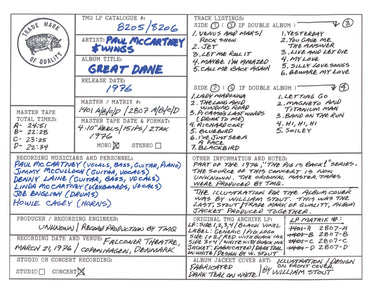 TRADE MARK
OF QUALITY
TMQ LP CATALOGUE #:
8205/8206
ARTIST: PAUL McCARTNEY
& WINGS
ALBUM TITLE:
GREAT DANE
RELEASE DATE:
1976
MASTER / MATRIX #:
MASTER TAPE DATE & FORMAT:
4-10" REELS/15 IPS/2TRK
1976
MONO STEREO
MASTER TAPE
TOTAL TIMES:
A- 24:51
B- 22:28
C- 23:28
D- 25:34
RECORDING MUSICIANS AND PERSONNEL:
PAUL McCARTNEY (VOCALS, BASS, GUITAR, PIANO)
JIMMY McCULLOCH (GUITAR, BASS)
DENNY LAINE (GUITAR, BASS, VOCALS)
LINDA McCARTNEY (KEYBOARDS, VOCALS)
JOE ENGLISH (DRUMS)
HOWIE CASEY (HORNS)
PRODUCER / RECORDING ENGINEER:
UNKNOWN / RECORD PRODUCTION BY TMOQ
RECORDING DATE AND VENUE: FALCONER THEATRE,
MARCH 21, 1976 / COPENHAGEN, DENMARK
STUDIO OR CONCERT RECORDING:
STUDIO CONCERT
TRACK LISTINGS:
SIDE 1 (IF DOUBLE ALBUM)
1. VENUS AND MARS/
ROCK SHOW
2. JET
3. LET ME ROLL IT
4. MAYBE I'M AMAZED
5. CALL ME BACK AGAIN
1. YESTERDAY
2. YOU GAVE ME
THE ANSWER
3. LIVE AND LET DIE
4. MY LOVE
5. SILLY LOVE SONGS
6. BEWARE MY LOVE
(IF DOUBLE ALBUM)
1. LADY MADONNA
2. THE LONG AND
WINDING ROAD
3. PICASSO'S LAST WORDS
(DRINK TO ME)
4. RICHARD CORY
5. BLUEBIRD
6. I'VE JUST SEEN
A FACE
7. BLACKBIRD
1. LETTING GO
2. MAGNETO AND
TITANIUM MAN
3. BAND ON THE RUN
4. HI, HI, HI
5. SOILY
OTHER INFORMATION AND NOTES:
PART OF THE 1976 "THE PIG IS BACK!" SERIES.
THE SOURCE OF THIS CONCERT IS NON
UNKNOWN. THE ORIGINAL MASTER TAPES
WERE PRODUCED BY TMOQ.
THE ILLUSTRATION FOR THE ALBUM COVER
WAS BY WILLIAM STOUT. THIS WAS THE
LAST, STOUT/TRADE MARK OF QUALITY, ALBUM
JACKET PRODUCED TOGETHER.
ORIGINAL TMQ ARCHIVE LP
LP MATRIX #:
2807-A
2807-B
2807-C
2807-D
ALBUM JACKET COVER ART: ILLUSTRATION/DESIGN
ON FRONT COVER
BY WILLIAM STOUT
FABRICATED
DARK TEAL ON WHITE